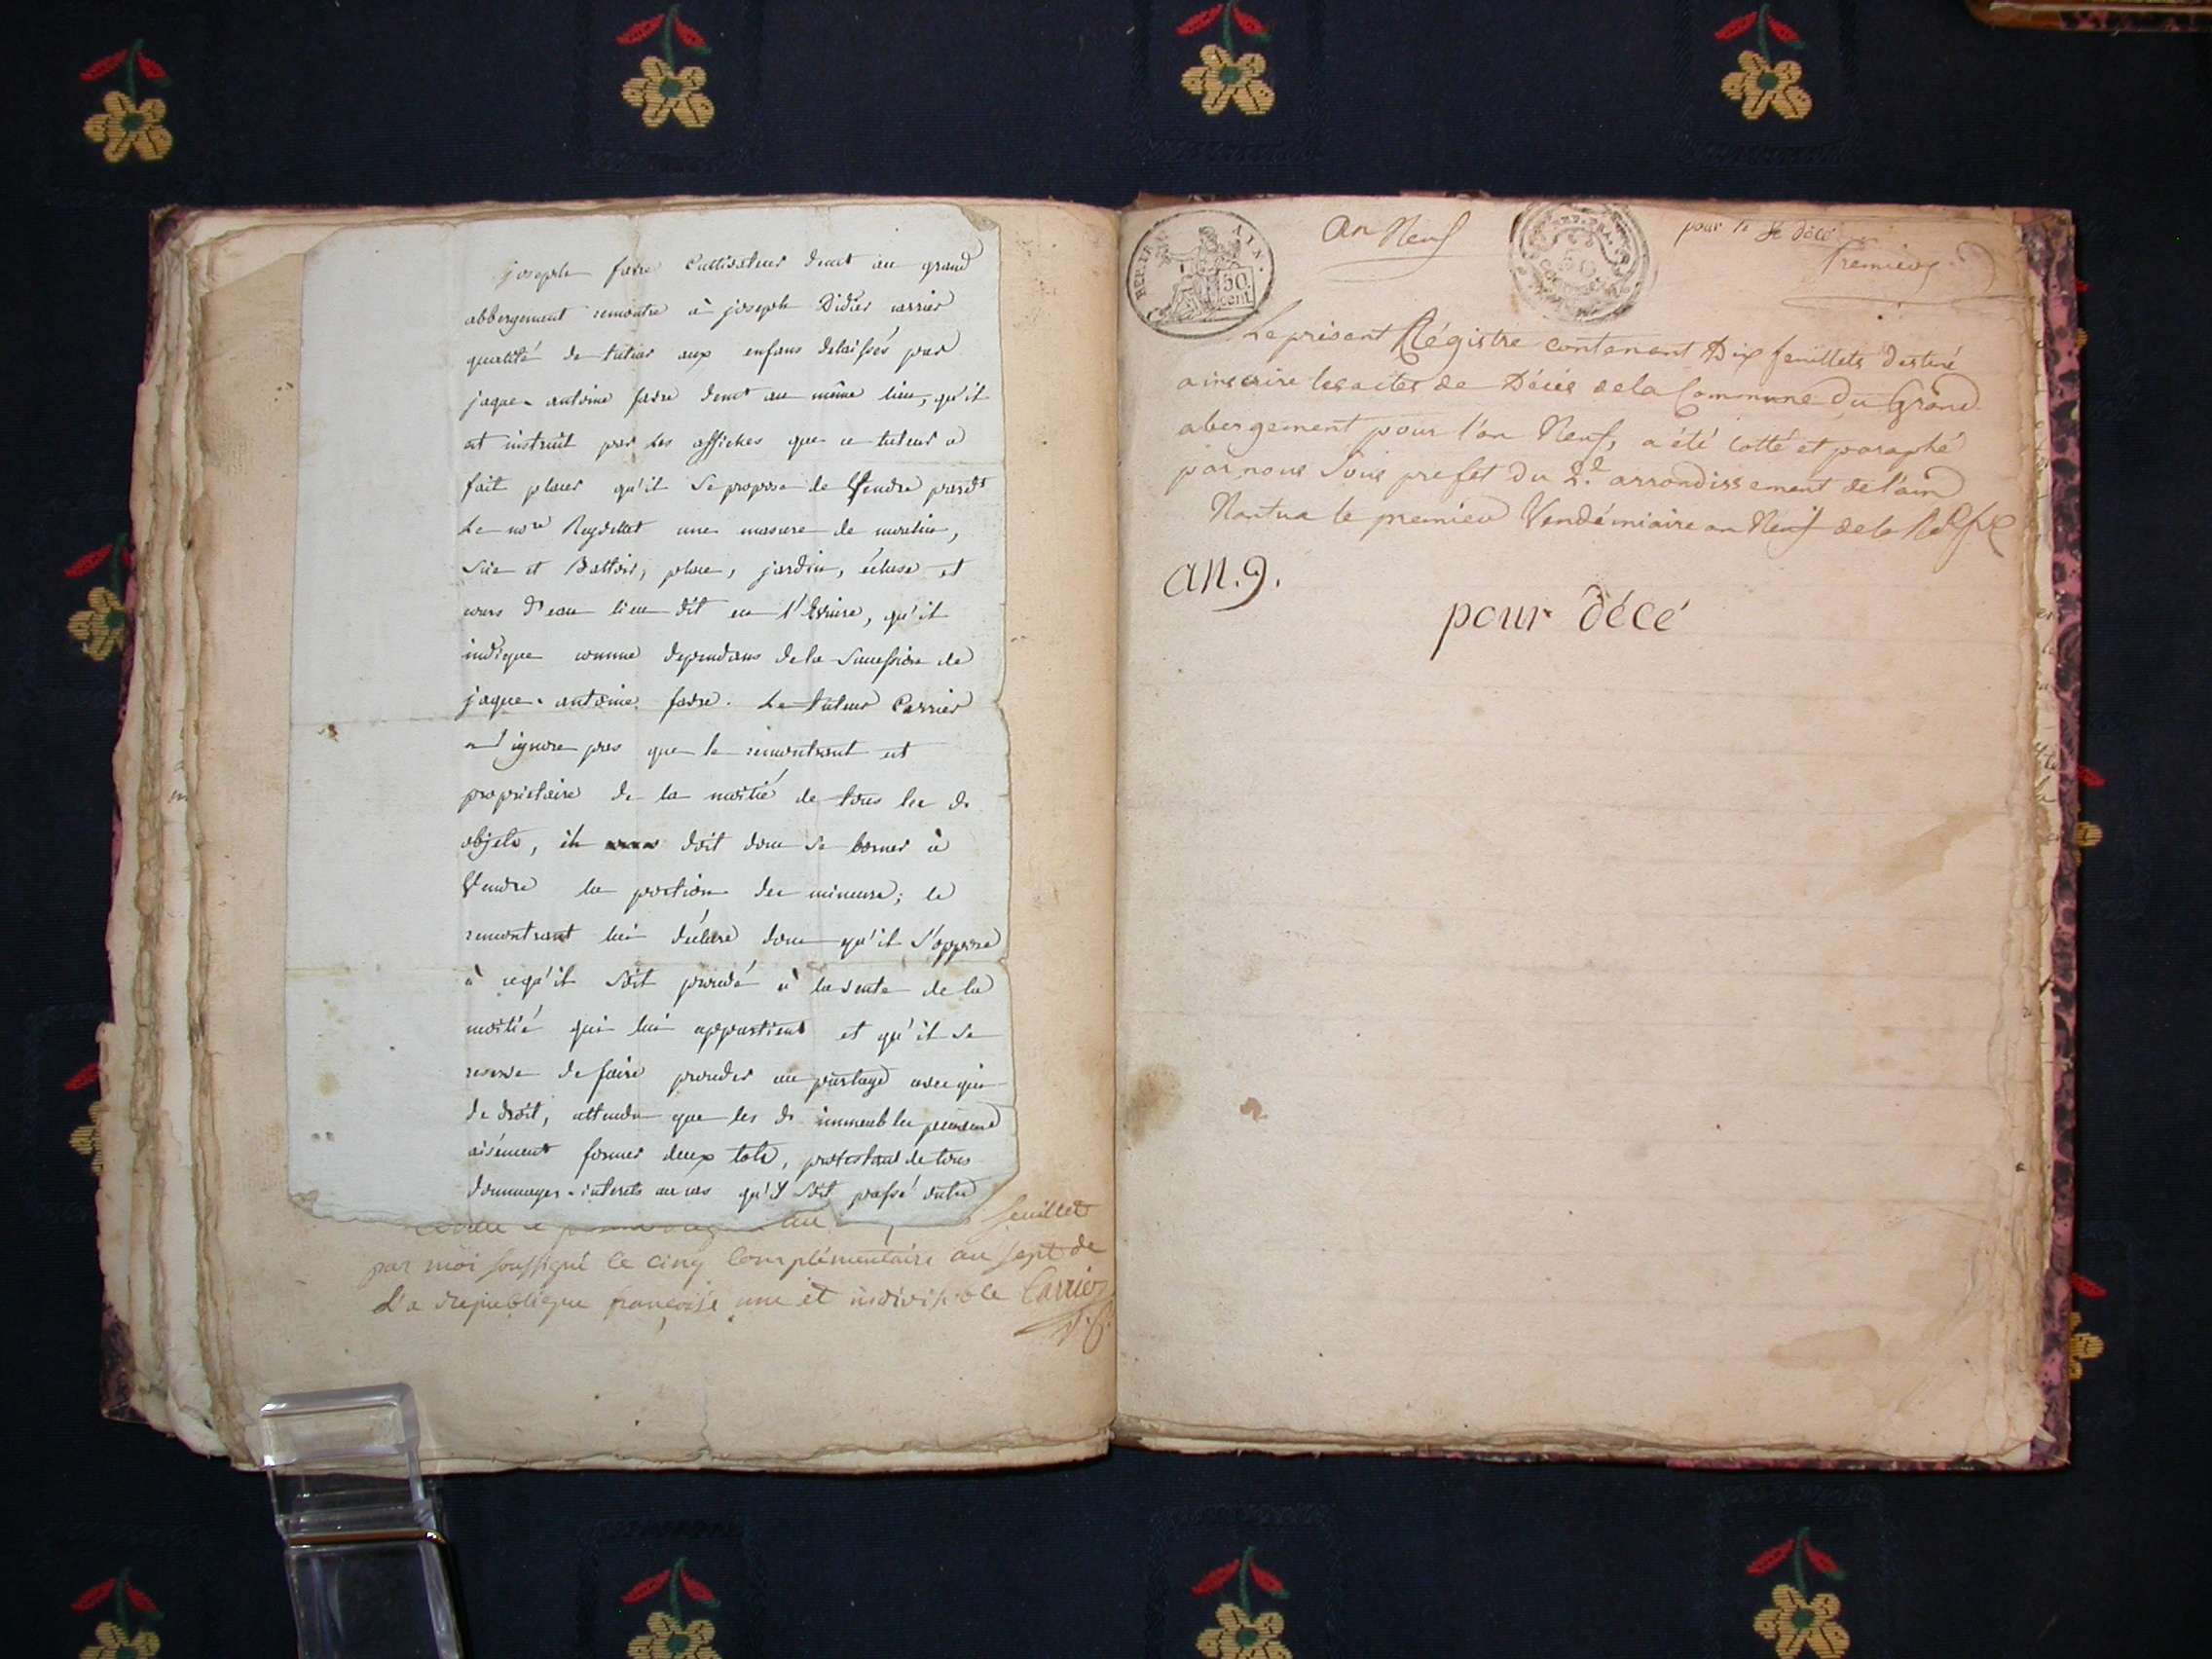 joseph favre Cultivateur demt au grand
abbergement remontre à joseph Didier carrier
qualité de tuteur aux enfans delaissés par
jaque-antoine favre demt au même lieu, qu'il
est instruit par les affiches que ce tuteur a
fait placer qu'il se propose de Vendre pardt
Le nore Reydellet une masure de moulin,
Scie et Battoir, place, jardin, écluse et
cours d'eau lieu dit en l'
indique comme dependans de la Succession de
jaque-antoine favre. Le tuteur Carrier
n'ignore pas que le remontrant est
proprietaire de la moitié de tous les ds
objets, il doit donc se borner à
Vendre la portion des mineurs; le
remontrant lui déclare donc qu'il s'oppose
à cequ'il soit procédé à la vente de la
moitié qui lui appartient et qu'il se
reserve de faire proceder au partage avec qui
de droit, attendu que les ds immeubles peuvent
aisément former deux lots, protestant de tous
dommages-interets au cas qu'il soit passé outre
feuillet
par moi soussigné le cinq complémentaire an sept de
La republique françoise une et indivisible Carrier
REP. FRA. AIN.
50 cent.
an Neuf
pour le de décé
Premier
Le présent Régistre contenant Dix feuillets destiné
a inscrire les actes de Décés de la Commune du Grand
abergement pour l'an Neuf, a été cotté et paraphé
par nous Sous prefet du 2.e arrondissement de l'ain
Nantua le premier Vendémiaire an Neuf de la
an.9.
pour décé